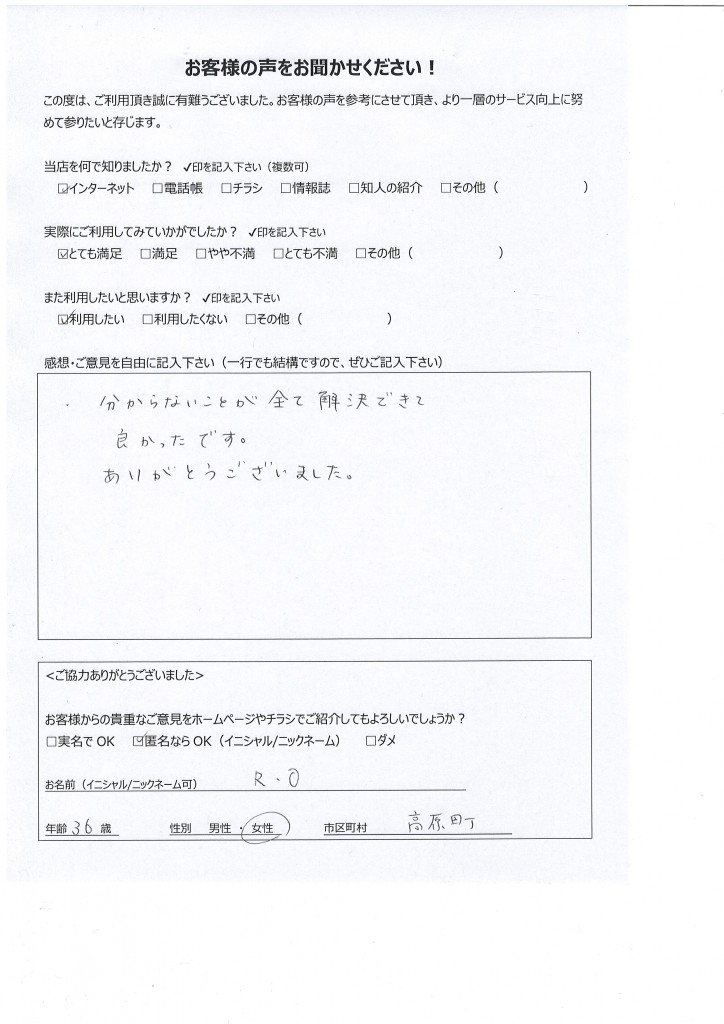 お客様の声をお聞かせください！
この度は、ご利用頂き誠に有難うございました。お客様の声を参考にさせて頂き、より一層のサービス向上に努
めて参りたいと存じます。
当店を何で知りましたか？ ✓印を記入下さい（複数可）
☑インターネット □電話帳 □チラシ □情報誌 □知人の紹介 □その他（ ）
実際にご利用してみていかがでしたか？ ✓印を記入下さい
☑とても満足 □満足 □やや不満 □とても不満 □その他（ ）
また利用したいと思いますか？ ✓印を記入下さい
☑利用したい □利用したくない □その他（ ）
感想・ご意見を自由に記入下さい（一行でも結構ですので、ぜひご記入下さい）
・ 分からないことが全て解決できて
良かったです。
ありがとうございました。
<ご協力ありがとうございました>
お客様からの貴重なご意見をホームページやチラシでご紹介してもよろしいでしょうか？
□実名で OK ☑匿名なら OK（イニシャル/ニックネーム） □ダメ
お名前（イニシャル/ニックネーム可） R・O
年齢 36 歳 性別 男性・女性 市区町村 高原町